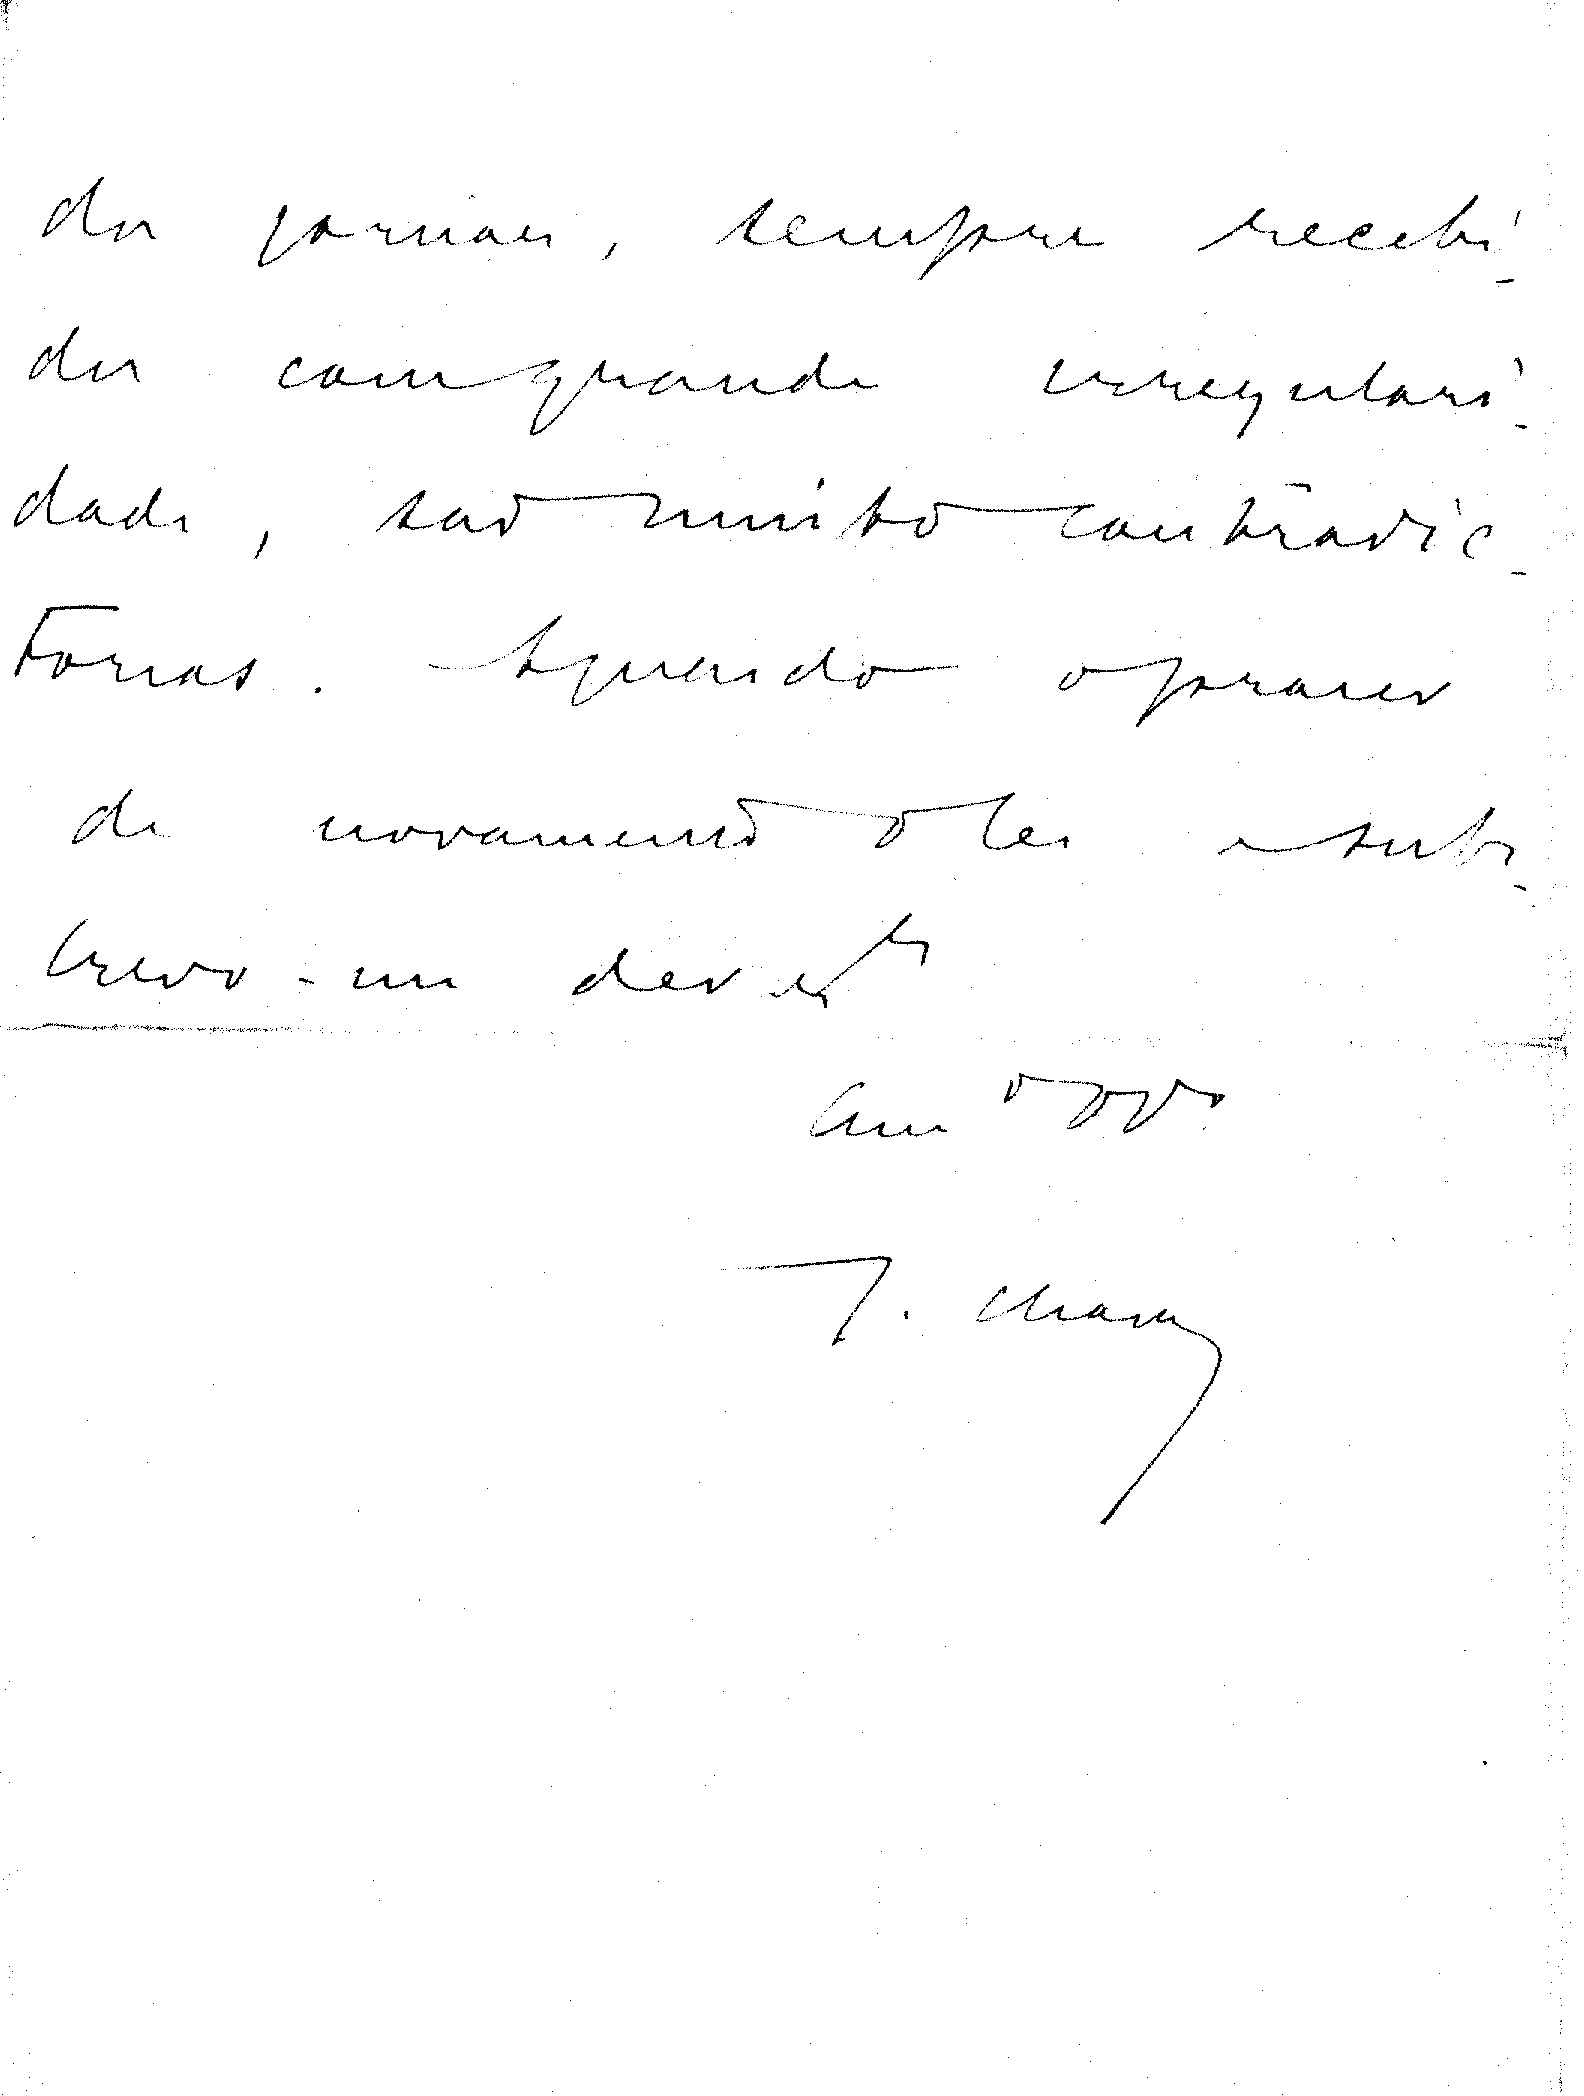 dos jornaes, sempre recebi-
dos com grande irregulari-
dade, são muito contradic-
torias. Aguardo o prazer
de novamente o ler e subs-
crevo-me de V Exª
Amº
T. Chaves